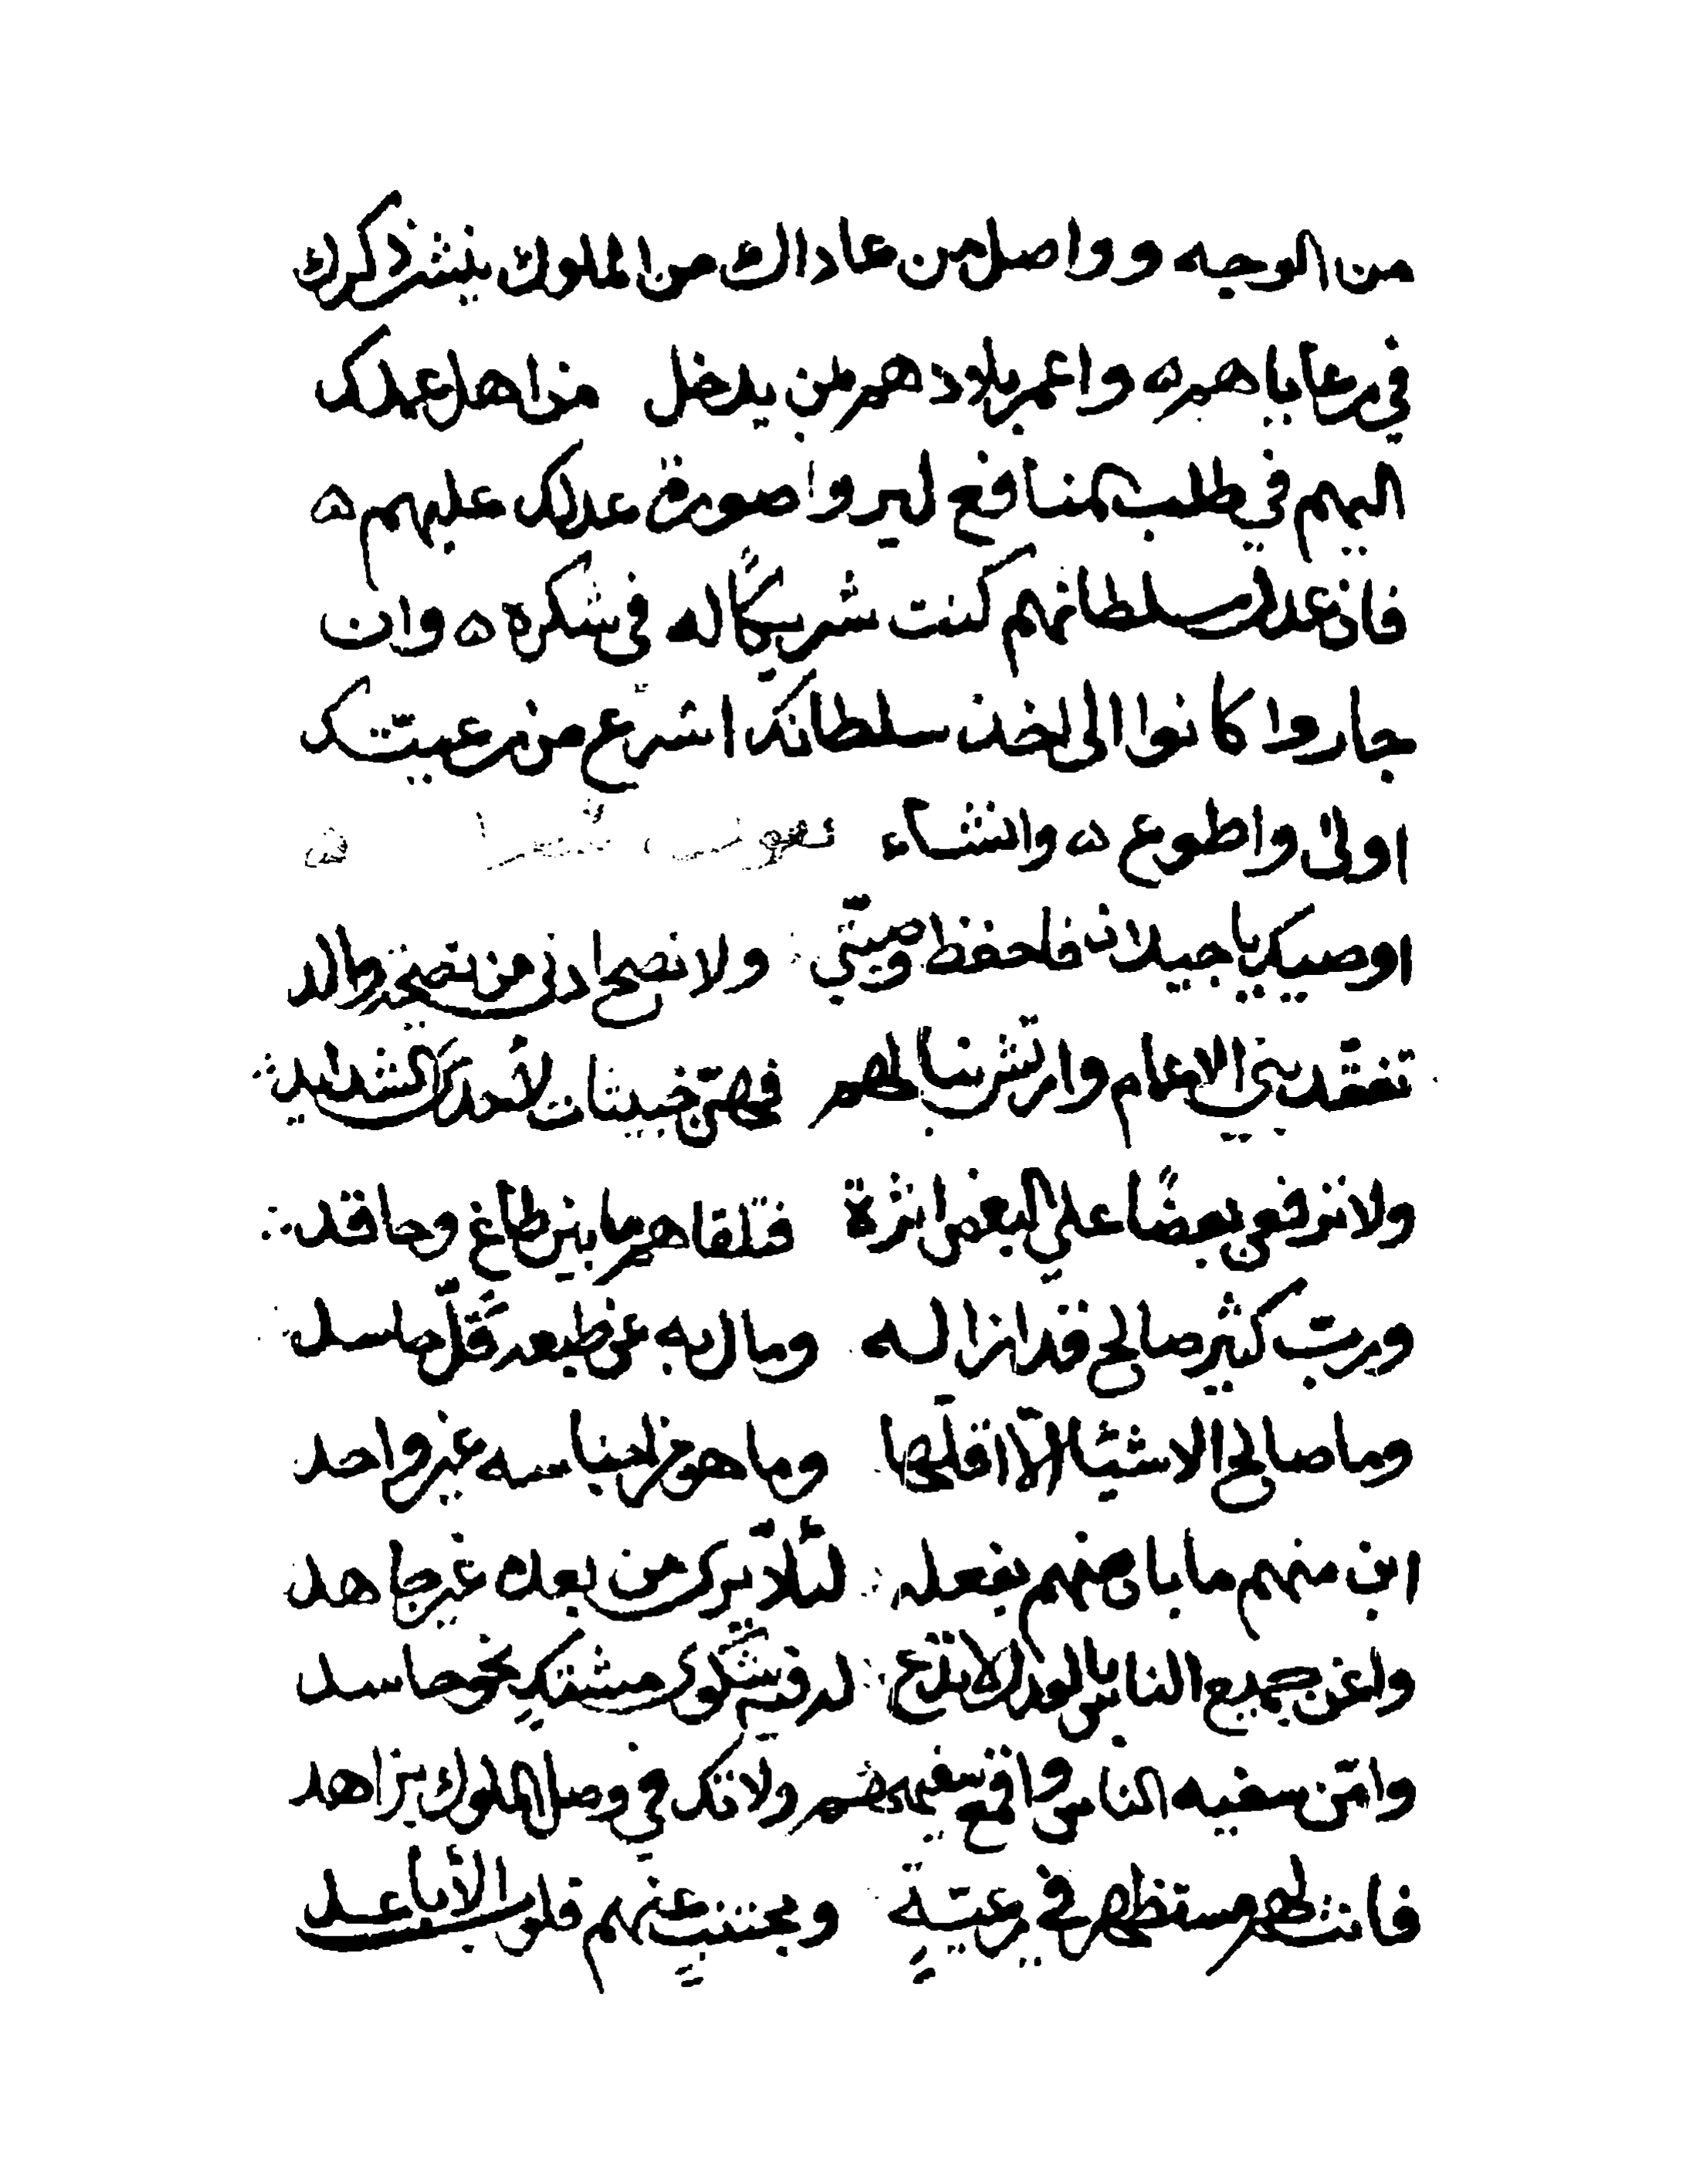 من الوجه و واصل من عاداك من الملوك بنشر ذكرك
في رعاياهم ه واعمر بلادهم بمن يدخل من اهل عملك
اليهم في طلب المنافع ليروا صورة عدلك عليهم ه
فان عدل سلطانهم كنت شريكًا له في شكره ه وان
جاروا كانوا الى اخذ سلطانك اسرع من رعيتك
اولى واطوع ه وانشاء
اوصيك يا جيلان فاحفظ وصيتي ولا نصح ادنى من نصيحة والد
تفقّد بني الاعمام وارتش بنبالهم فهم خبيئات لأمورك الشدايد
ولا ترفعن بعضًا على البعض اثرة فتلقاهم ما بين طاغ وحاقد
ورب كثير صالح قد ازاله ومال به عن طبعه قلّ فاسد
وما صالح الاشيا الّا اقلّها وما هو من اجناسه غير واحد
ابن منهم ما بان منهم بفعله لئلّا يرى من بعد غير جاهد
واغن جميع الناس بالود لا تدع لدفيه شكوى مشتكٍ نحو حاسد
وامّن سفيه الناس واقمع سفيههم ولا تك في وصل الملوك بزاهد
فانت لهم مستظهر في رعيّةٍ ومجتنبٌ عنهم قلوب الاباعد